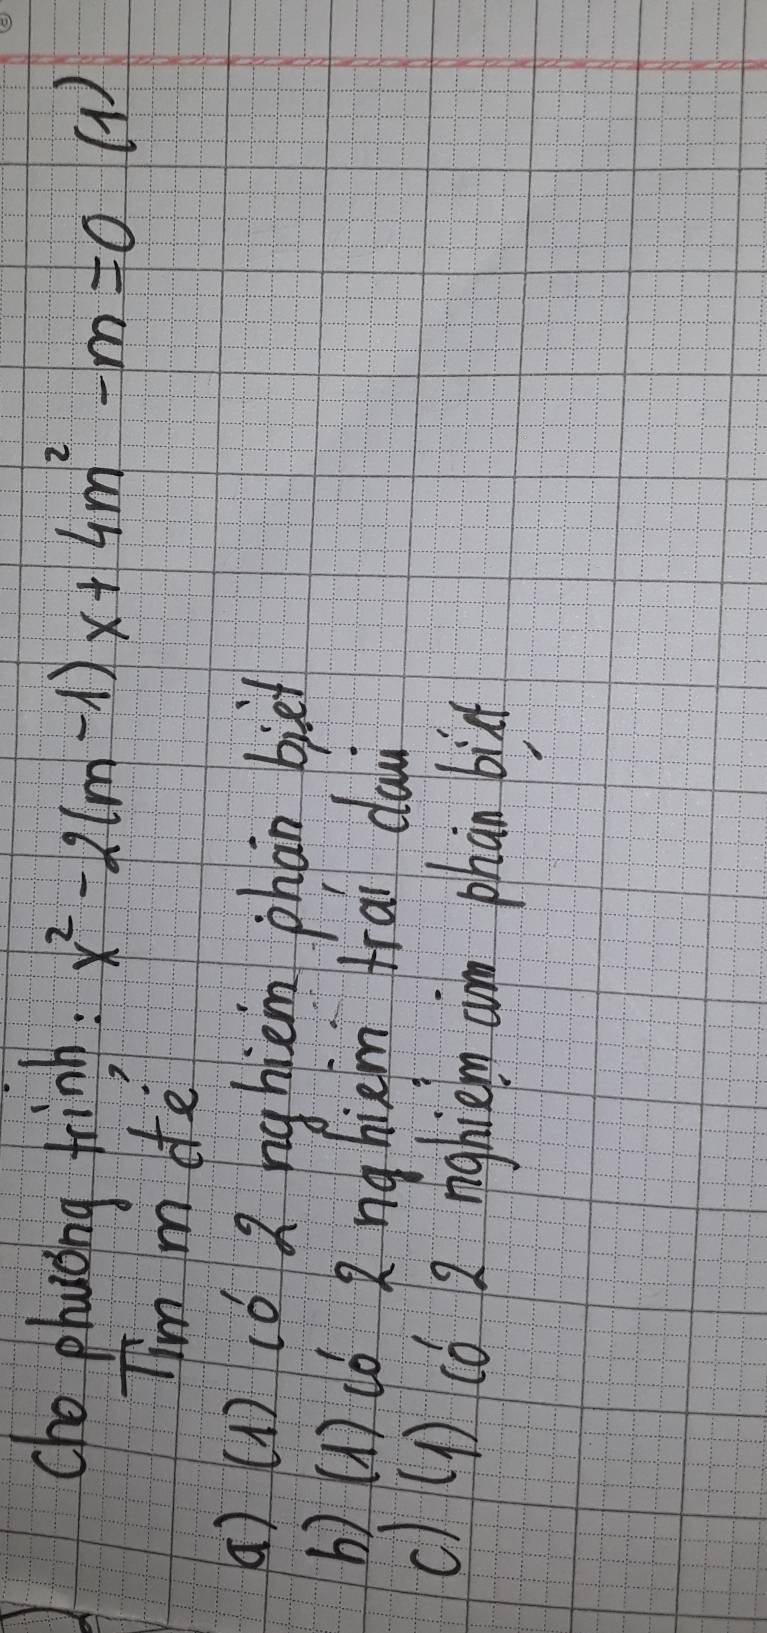 Cho phương trình: x² - 2(m-1)x + 4m² - m = 0 (1)
Tìm m để
a) (1) có 2 nghiệm phân biệt
b) (1) có 2 nghiệm trái dấu
c) (1) có 2 nghiệm âm phân biệt